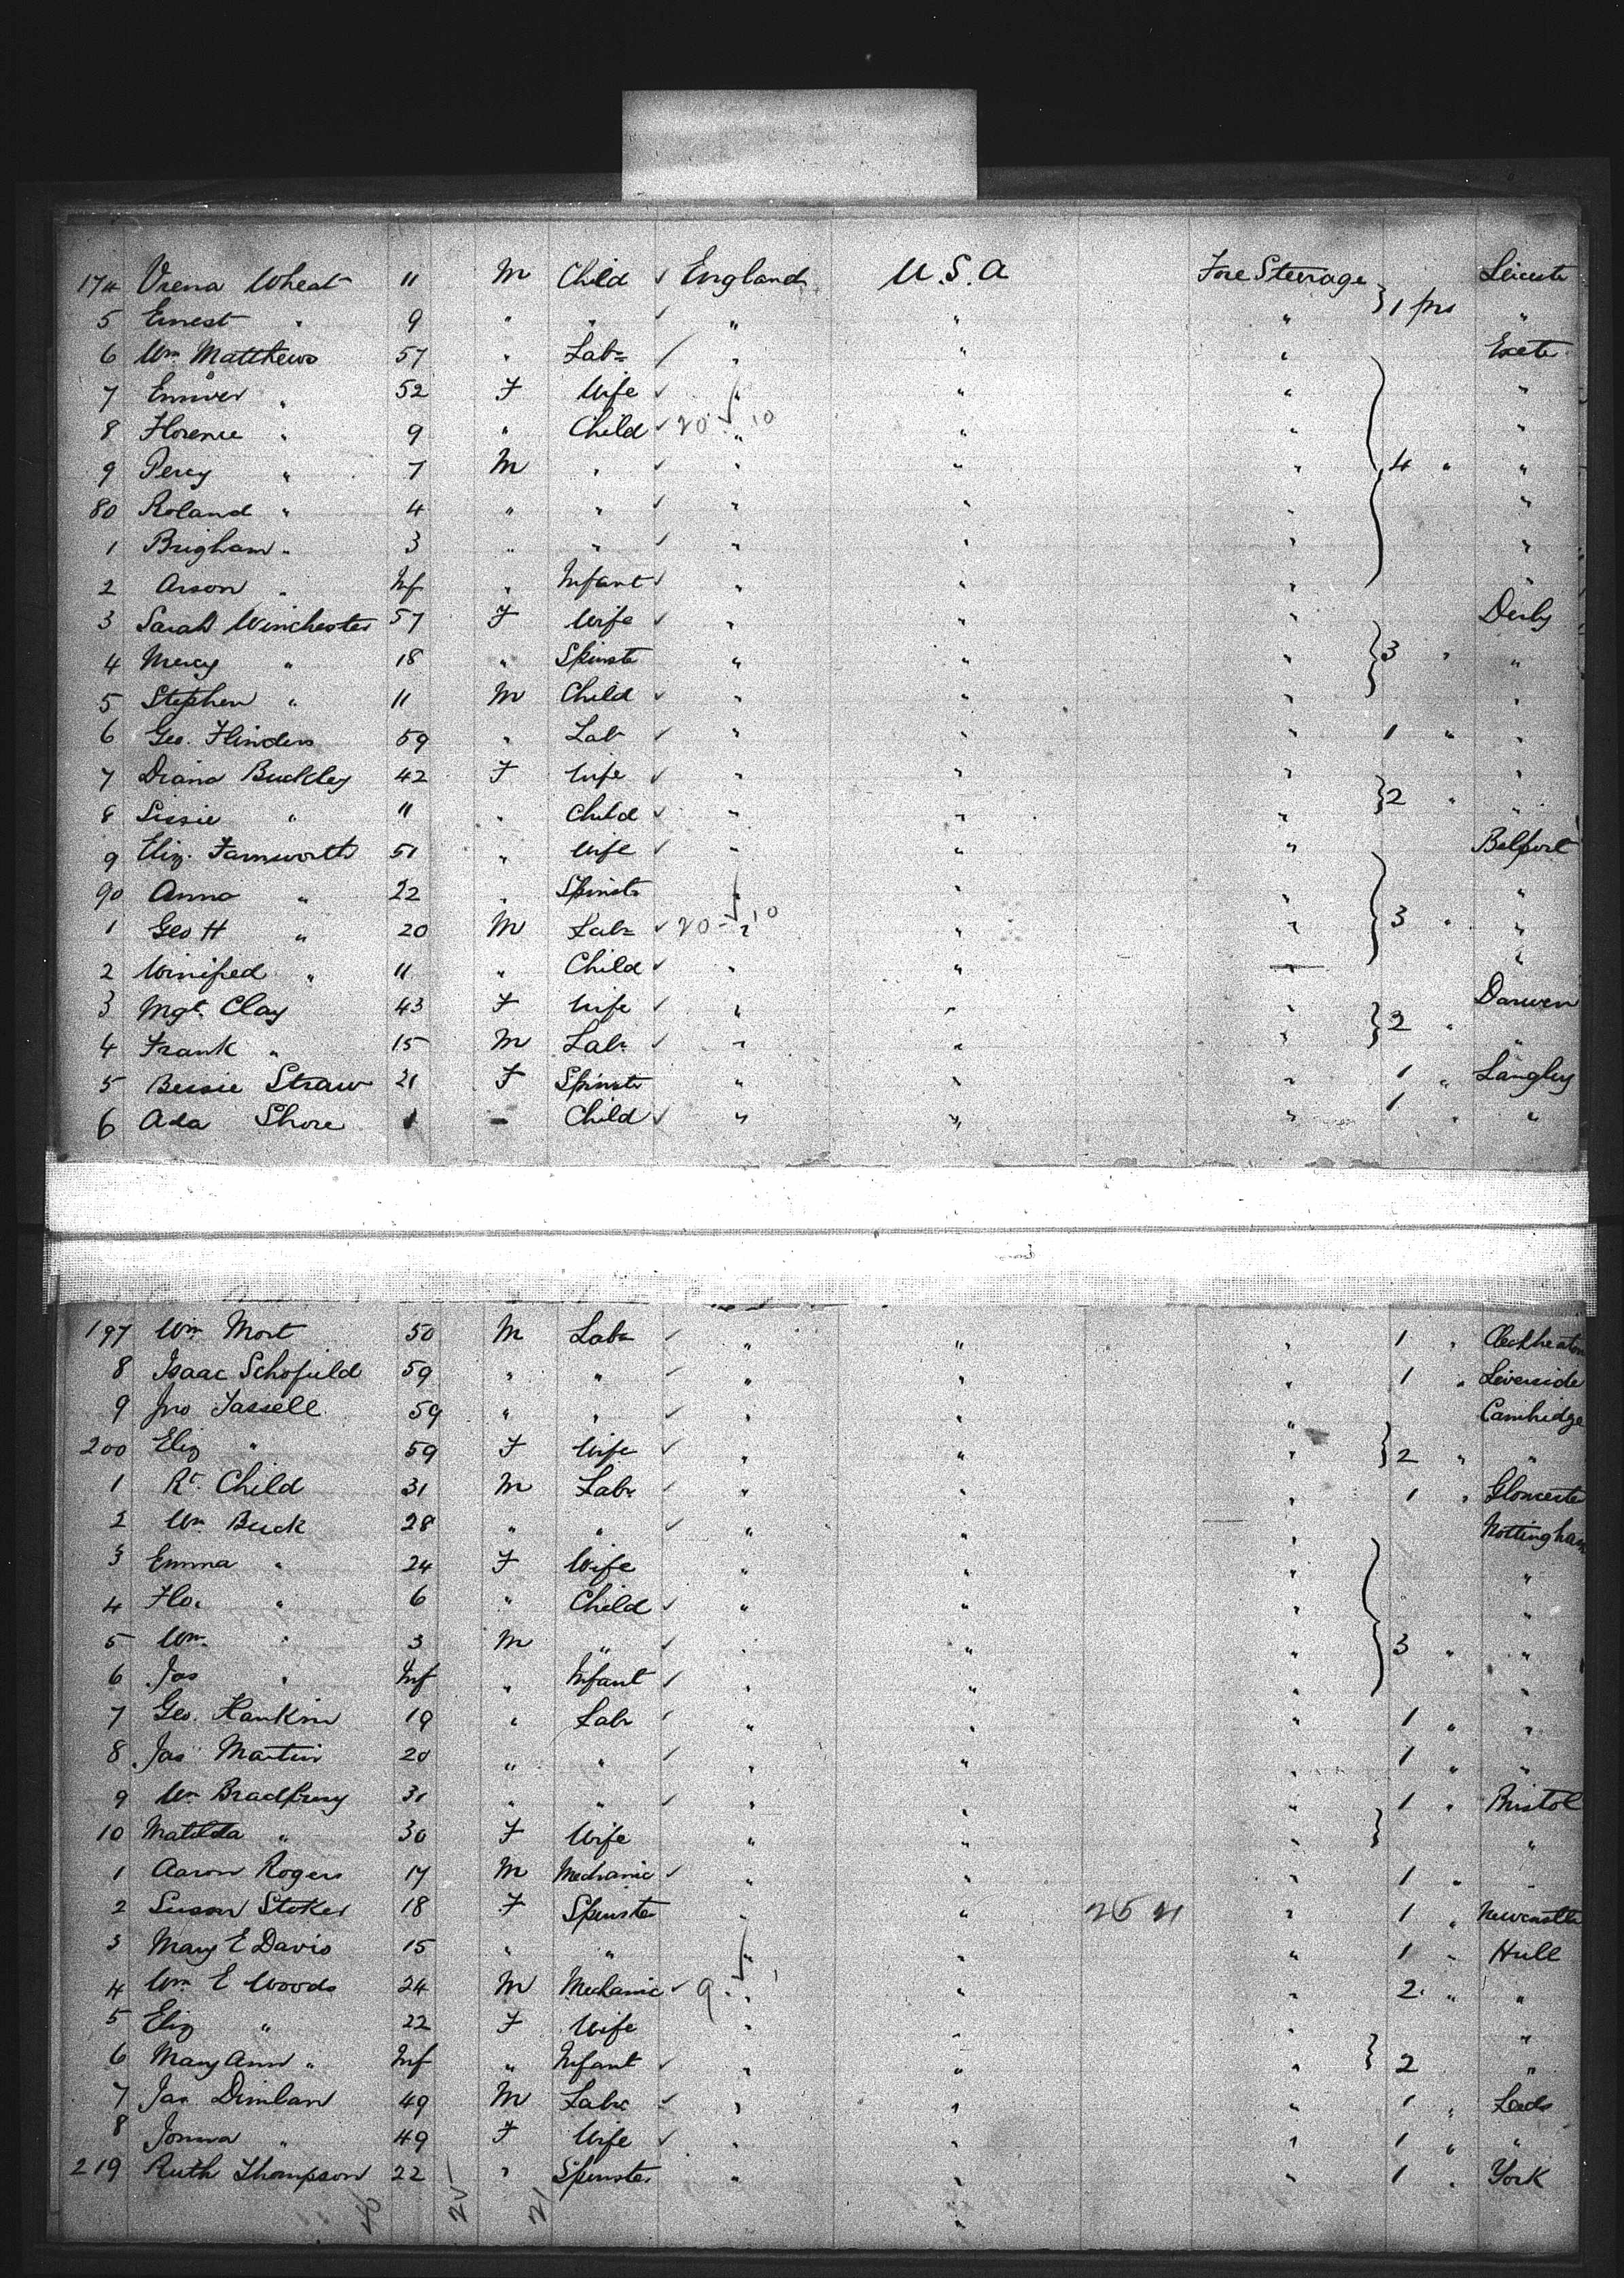 174 Vrena Wheat 11 M Child ✓ England U.S.A Fore Steerage } 1 pcs Leicester
5 Ernest " 9 " " ✓ " " " "
6 Wm Matthews 57 " Labr ✓ " " " Exeter
7 " 52 F Wife ✓ " " " "
8 Florence " 9 " Child ✓ 20 " 10 " " "
9 Percy " 7 M " ✓ " " " 4 " "
80 Roland " 4 " " ✓ " " " "
1 Brigham " 3 " " ✓ " " " "
2 Arson " Inf " Infant ✓ " " "
3 Sarah Winchester 57 F Wife ✓ " " " Derby
4 Mercy " 18 " Spinster " " " } 3 " "
5 Stephen " 11 M Child ✓ " " " "
6 Geo. Flinders 59 " Labr ✓ " " " 1 " "
7 Diana Buckley 42 F Wife ✓ " " " "
8 Lissie " 11 " Child ✓ " " " } 2 " "
9 Eliz. Farnworth 51 " Wife ✓ " " " Belport
90 Anna " 22 " Spinster " " " "
1 Geo H " 20 M Labr ✓ 20 " 10 " " } 3 " "
2 Winifred " 11 " Child ✓ " " " "
3 Mgt. Clay 43 F Wife ✓ " " " Darwen
4 Frank " 15 M Labr ✓ " " " } 2 " "
5 Bessie Straw 21 F Spinster " " " 1 " Langley
6 Ada Shore 1 " Child ✓ " " " 1 " "
197 Wm Mort 50 M Labr ✓ " " " 1 " Cleckheaton
8 Isaac Schofield 59 " " ✓ " " " 1 " Liverside
9 Jno Tassell 59 " " ✓ " " " Cambridge
200 Eliz " 59 F Wife ✓ " " " } 2 " "
1 Rt. Child 31 M Labr ✓ " " " 1 " Gloucester
2 Wm Buck 28 " " ✓ " " " Nottingham
3 Emma " 24 F Wife " " " "
4 Flo. " 6 " Child ✓ " " " "
5 Wm. " 3 M " ✓ " " " } 3 " "
6 Jas " Inf " Infant ✓ " " " "
7 Geo. Hankin 19 " Labr ✓ " " " 1 " "
8 Jas Martin 20 " " ✓ " " " 1 " "
9 Wm Bradbury 31 " " ✓ " " " 1 " Bristol
10 Matilda " 30 F Wife " " " } "
1 Aaron Rogers 17 M Mechanic ✓ " " " 1 " "
2 Susan Stoker 18 F Spinster " " " 1 " Newcastle
3 Mary E Davis 15 " " " " " 1 " Hull
4 Wm E Woods 24 M Mechanic ✓ 9 " " " 2 " "
5 Eliz " 22 F Wife " " " "
6 Mary Ann " Inf " Infant ✓ " " " } 2 "
7 Jas Dimlan 49 M Labr ✓ " " " 1 " Leeds
8 " 49 F Wife ✓ " " " 1 " "
219 Ruth Thompson 22 " Spinster " " " 1 " York